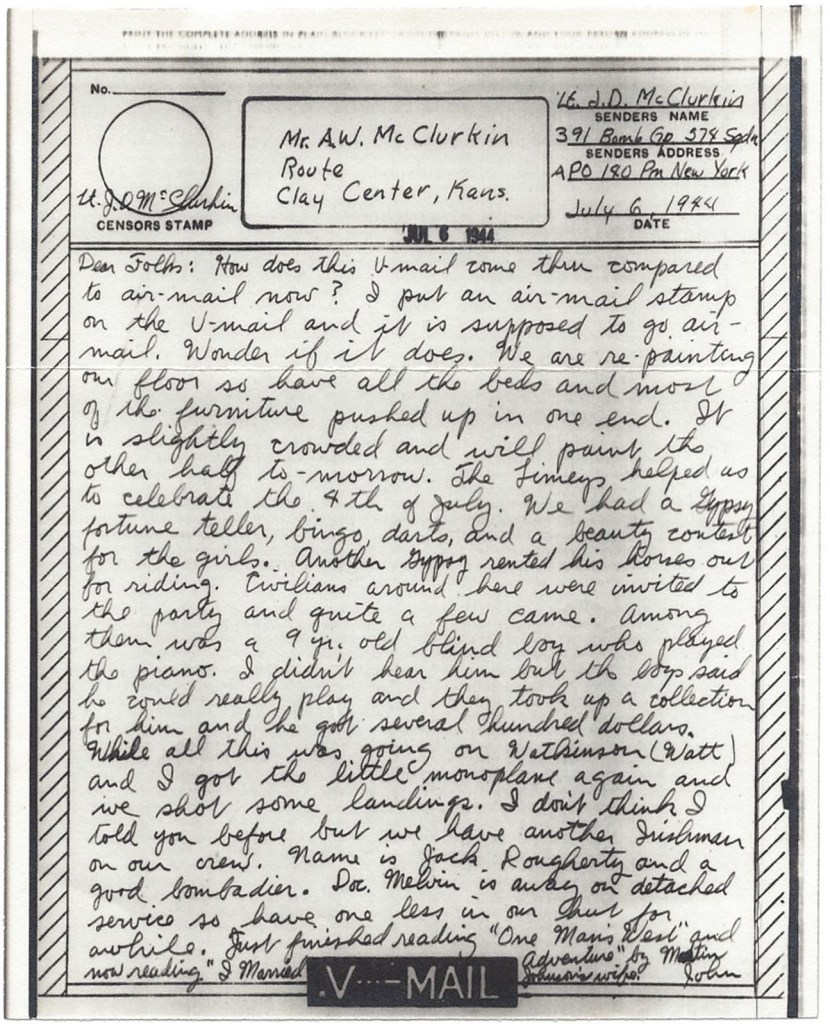 PRINT THE COMPLETE ADDRESS IN PLAIN
No.
Lt. J.D. McClurkin
SENDERS NAME
Mr. A.W. McClurkin
391 Bomb Gp 574 Sqdn
SENDERS ADDRESS
Route
APO 140 Pm New York
Clay Center, Kans.
Lt. J.D. McClurkin
CENSORS STAMP
July 6, 1944
DATE
JUL 6 1944
Dear Folks: How does this V-mail come thru compared
to air-mail now? I put an air-mail stamp
on the V-mail and it is supposed to go air-
mail. Wonder if it does. We are re-painting
our floor so have all the beds and most
of the furniture pushed up in one end. It
is slightly crowded and will paint the
other half to-morrow. The Limeys helped us
to celebrate the 4th of July. We had a Gypsy
fortune teller, bingo, darts, and a beauty contest
for the girls. Another Gypsy rented his horses out
for riding. Civilians around here were invited to
the party and quite a few came. Among
them was a 9 yr. old blind boy who played
the piano. I didn't hear him but the boys said
he could really play and they took up a collection
for him and he got several hundred dollars.
While all this was going on Watkinson (Watt)
and I got the little monoplane again and
we shot some landings. I don't think I
told you before but we have another Irishman
on our crew. Name is Jack Rougherty and a
good bombadier. Doc. Melvin is away on detached
service so have one less in our hut for
awhile. Just finished reading "One Man's West" and
now reading "I Married Adventure" by Martin
Johnson's wife. John
V···—MAIL